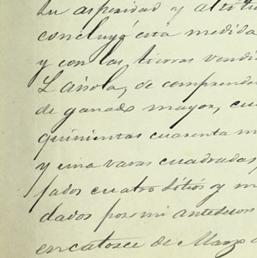 su asperidad y altitu
concluyó esta medida
y con las tierras vendi
Lainola, de comprende
de ganado mayor, cu
quinientas cuarenta m
y una varas cuadradas,
pados cuatro sitios y m
dados por mi antecesor
en catorce de Marzo d